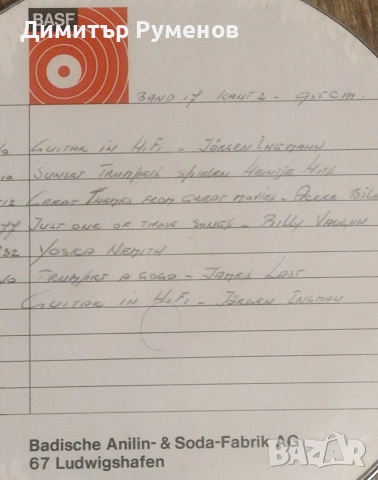 Димитър Руменов
BASF
BAND 17 KANT 2 - 9,5 CM.
GUITAR IN HiFi - JÖRGEN INGMANN
SUNSET TRUMPETS SPIELEN HEINTJE HITS
GREAT THEMES FROM GREAT MOVIES - ACKER BILK
77 JUST ONE OF THOSE SONGS - BILLY VAUGHN
832 YOSKA NEMITH
TRUMPET A GOGO - JAMES LAST
GUITAR IN HiFi - JÖRGEN INGMAN
Badische Anilin- & Soda-Fabrik AG
67 Ludwigshafen
bazar